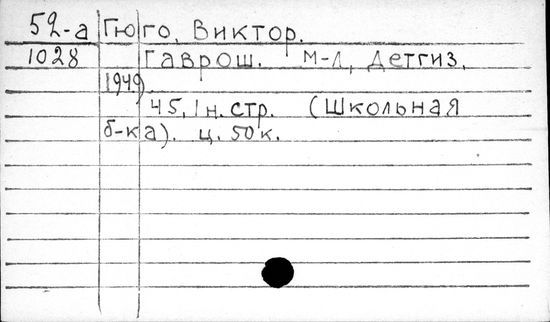 52-а Гюго, Виктор.
1028 Гаврош. М-Л, Детгиз,
1949.
45, 1 н. стр. (Школьная
б-ка). ц. 50 к.